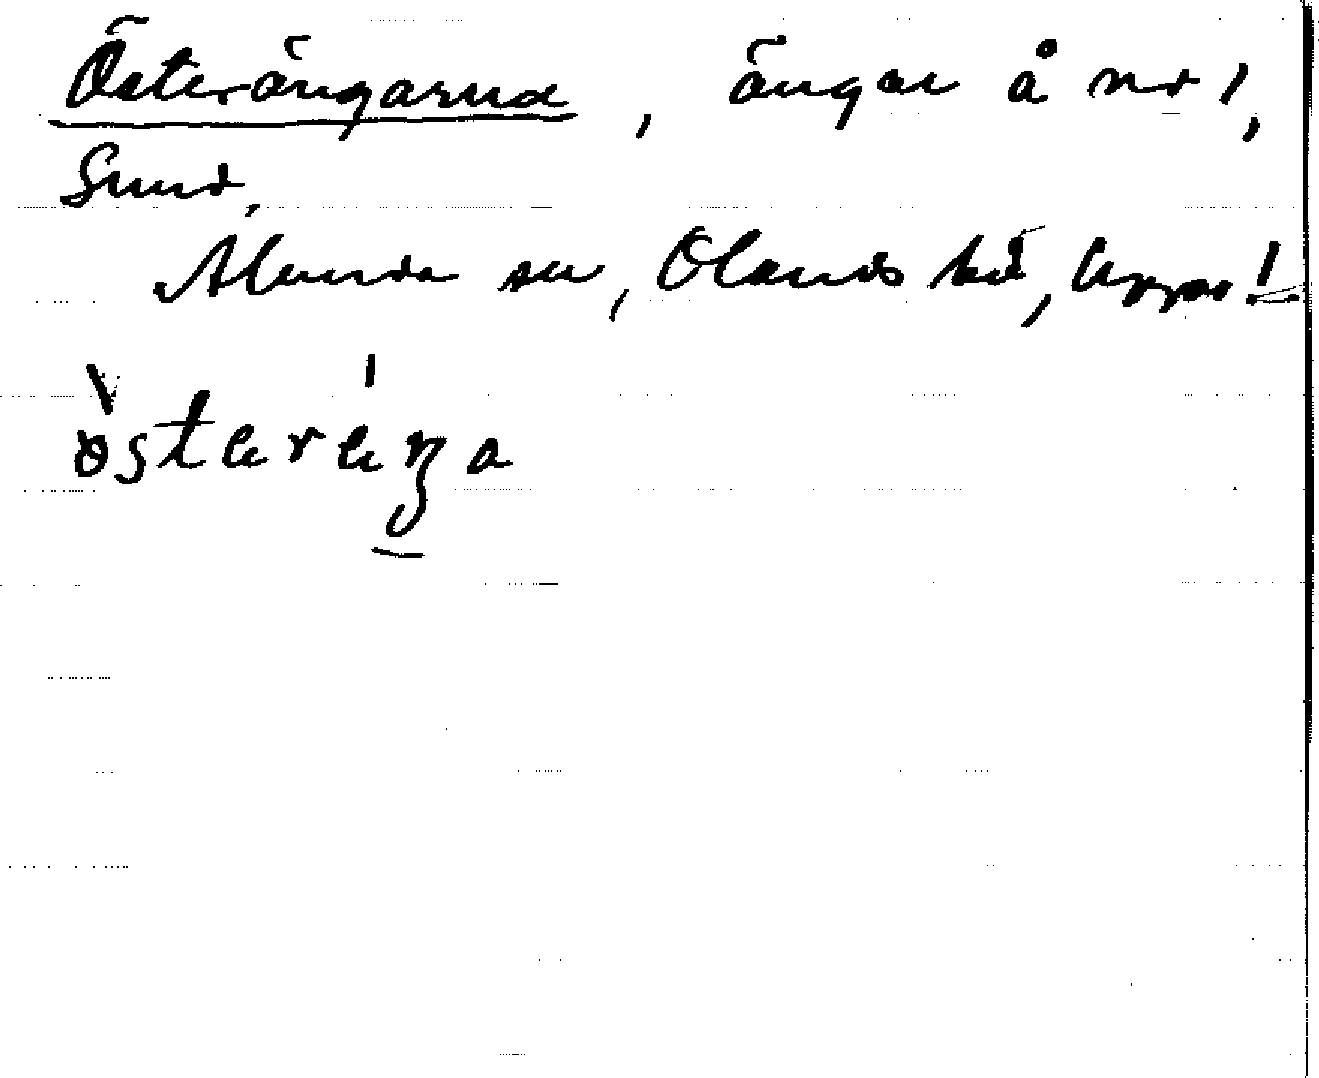 Österängarna, ängar å nr 1,
Sund,
Alunda sn, Olands hd, Upps!
österäŋa